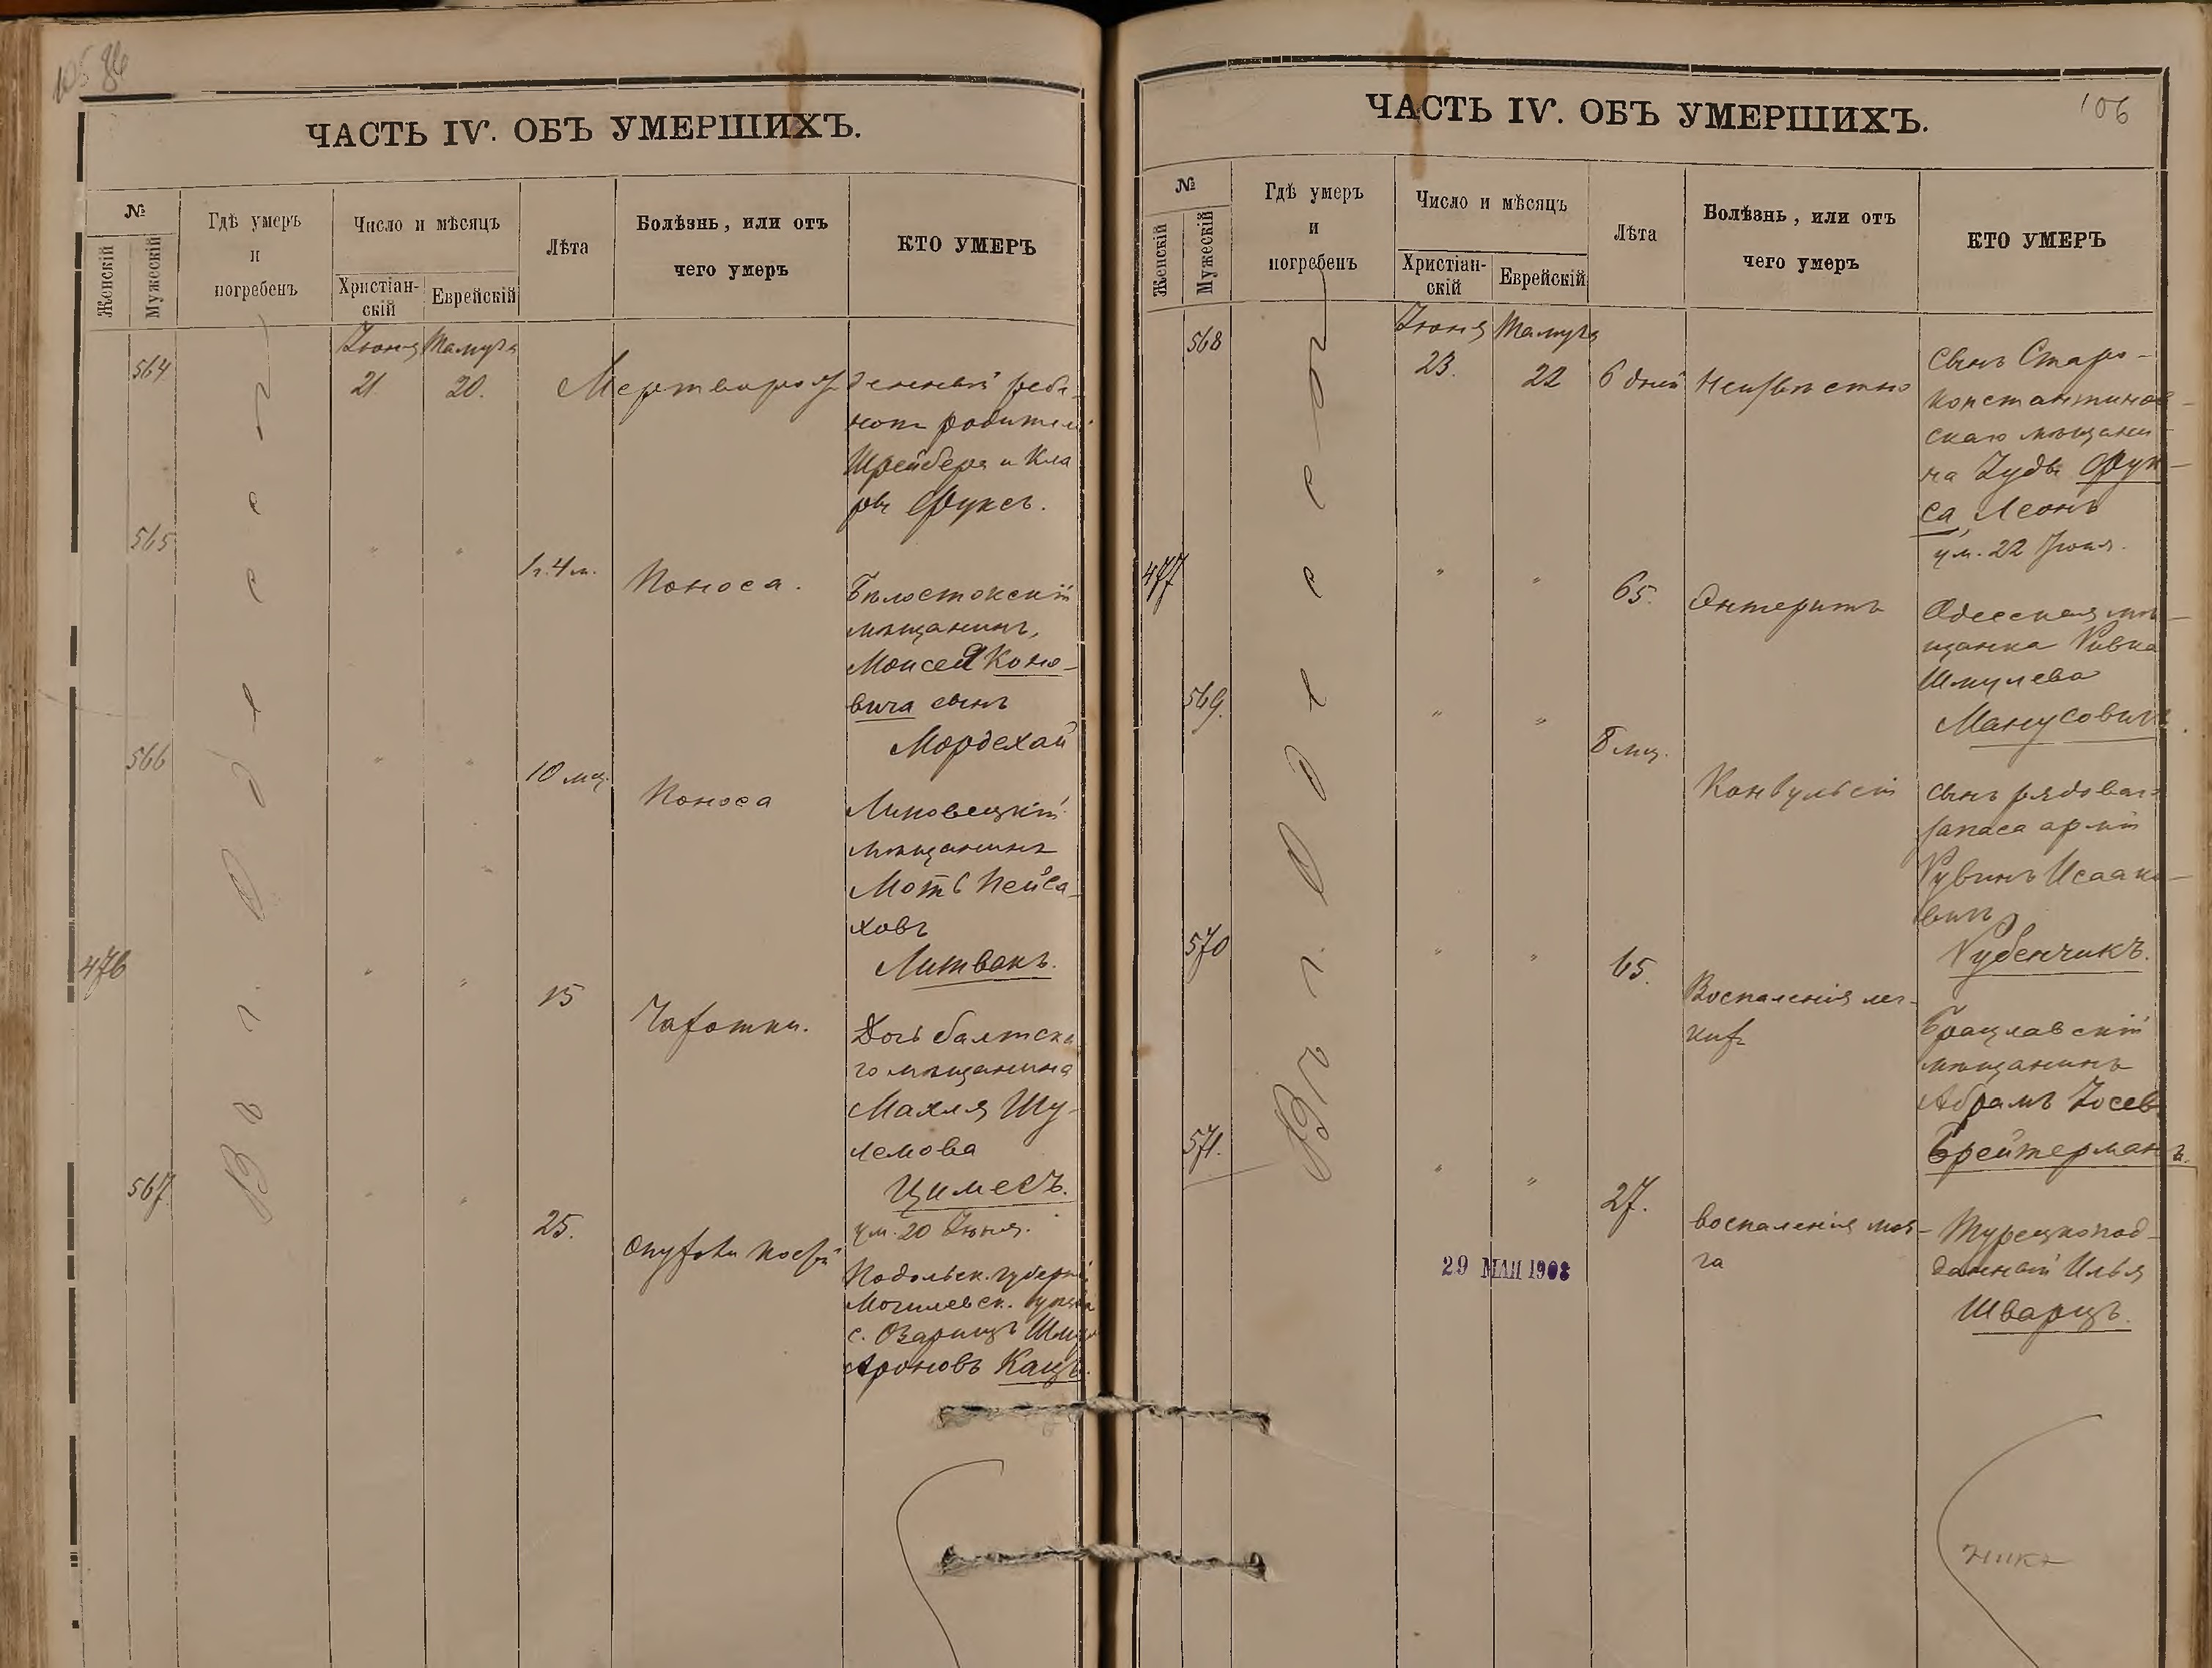 105
ЧАСТЬ IV. ОБЪ УМЕРШИХЪ.
№
Женскій
Мужескій
Гдѣ умеръ
и
погребенъ
Число и мѣсяцъ
Христіан-
скій
Еврейскій
Лѣта
Болѣзнь, или отъ
чего умеръ
КТО УМЕРЪ
Въ г. Одессѣ
Іюня Тамуза
564
21. 20. Мертворожденный ребе-
нокъ родителей
Шрейбера и Кла
ры Фуксъ.
565 " " 1 г. 4 м. Поноса.
Бѣлостокскій
мѣщанинъ,
Моисея Коно-
вича сынъ
Мордехай
566 " " 10 мц. Поноса
Липовецкій
мѣщанинъ
Мотъ Пейса-
ховъ
Литвакъ.
476 " " 15 Чахотки.
Дочь балтска
го мѣщанина
Махля Шу-
лемова
Цимесъ.
ум. 20 Іюня.
567 " " 25. Опухоли
Подольск. губерніи
Могилевск. уѣзда
с. Озаринцъ
Ароновъ Кацъ.
ЧАСТЬ IV. ОБЪ УМЕРШИХЪ.
106
№
Женскій
Мужескій
Гдѣ умеръ
и
погребенъ
Число и мѣсяцъ
Христіан-
скій
Еврейскій
Лѣта
Болѣзнь, или отъ
чего умеръ
КТО УМЕРЪ
Въ г. Одессѣ
Іюня Тамуза
568
23. 22 6 дней Неизвѣстно
сынъ Старо-
константинов-
скаго мѣщани-
на Іуды Фук-
са, Леонъ
ум. 22 Іюня.
477 " " 65. Энтеритъ
Одесская мѣ-
щанка Ривка
Шмулева
Манусовичъ.
569. " " 8 мц.
Конвульсій
сынъ рядоваго
запаса арміи
Рувинъ Исаако-
вичъ
Рубенчикъ.
570 " " 65.
Воспаленія лег-
кихъ
Брацлавскій
мѣщанинъ
Абрамъ Іосевъ
Брейтерманъ.
571. " " 27.
воспаленія моз-
га
Турецкопод-
данный Илья
Шварцъ.
29 МАЙ 1908